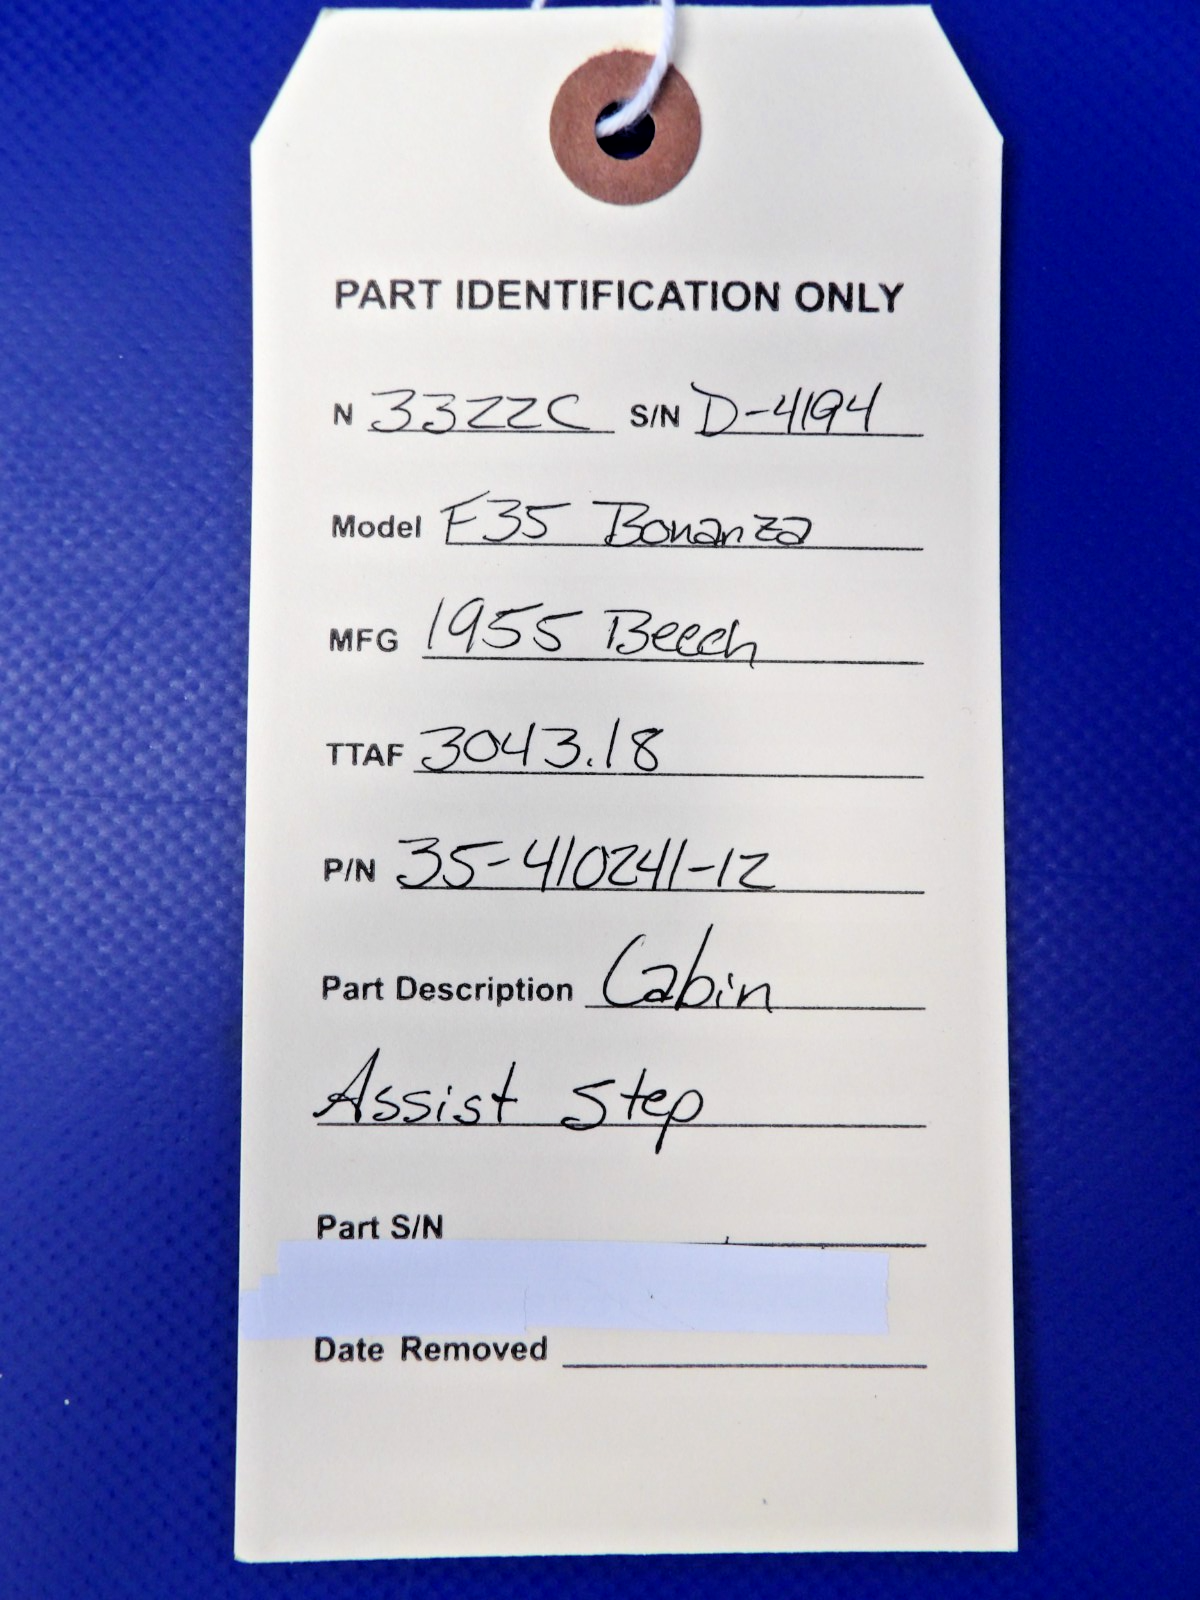 PART IDENTIFICATION ONLY
N 3322C S/N D-4194
Model F35 Bonanza
MFG 1955 Beech
TTAF 3043.18
P/N 35-410241-12
Part Description Cabin
Assist Step
Part S/N
Date Removed